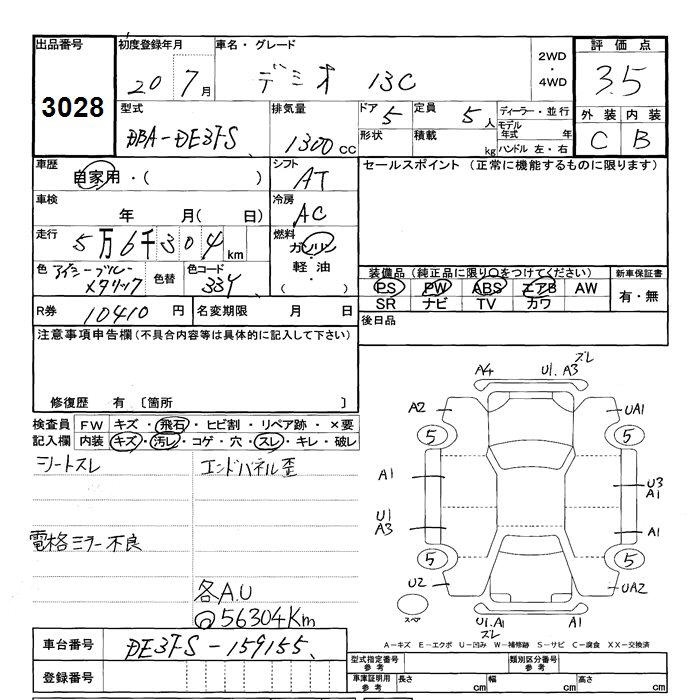 出品番号 初度登録年月 車名・グレード 2WD・4WD 評価点
3028 20 7月 デミオ 13C 3.5
型式 排気量 ドア 5 定員 5人 ディーラー・並行 外装 内装
DBA-DE3FS 1300cc 形状 積載 kg モデル年式 年 C B
ハンドル 左・右
車歴 自家用・( ) シフト AT セールスポイント (正常に機能するものに限ります)
車検 年 月( 日) 冷房 AC
走行 5万6千304km 燃料 ガソリン・軽油・( )
色 アイシーブルーメタリック 色替 色コード 33Y 装備品(純正品に限り○をつけてください) 新車保証書
PS PW ABS エアB AW 有・無
SR ナビ TV カワ
R券 10410円 名変期限 月 日 後日品
注意事項申告欄(不具合内容等は具体的に記入して下さい)
修復歴 有 〔箇所 〕
検査員記入欄 FW キズ・飛石・ヒビ割・リペア跡・×要
内装 キズ・汚レ・コゲ・穴・スレ・キレ・破レ
シートスレ エンドパネル歪
電格ミラー不良
各A.U
@56304Km
A4 U1.A3 ズレ
A2 UA1
5 5
A1 U3 A1
U1 A3 A1
5 5
U2 UA2
スペア U1.A1 ズレ A1
車台番号 DE3FS-159155
A-キズ E-エクボ U-凹み W-補修跡 S-サビ C-腐食 XX-交換済
登録番号 型式指定番号 参考 類別区分番号 参考
車庫証明用 参考 長さ cm 幅 cm 高さ cm